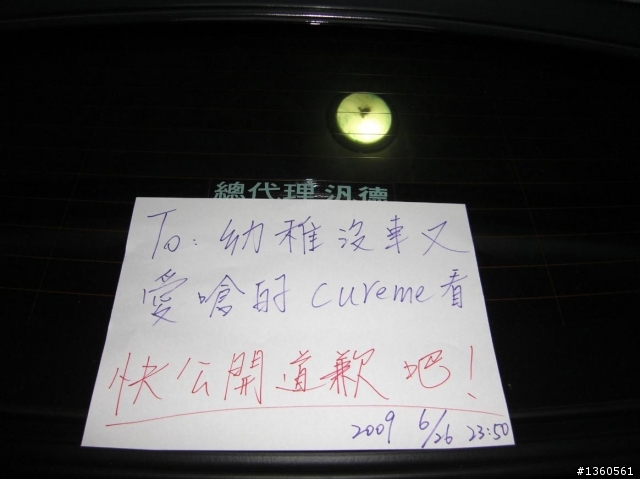 總代理 汎德
To: 幼稚沒車又
愛嗆的 cureme看
快公開道歉吧!
2009 6/26 23:50
#1360561